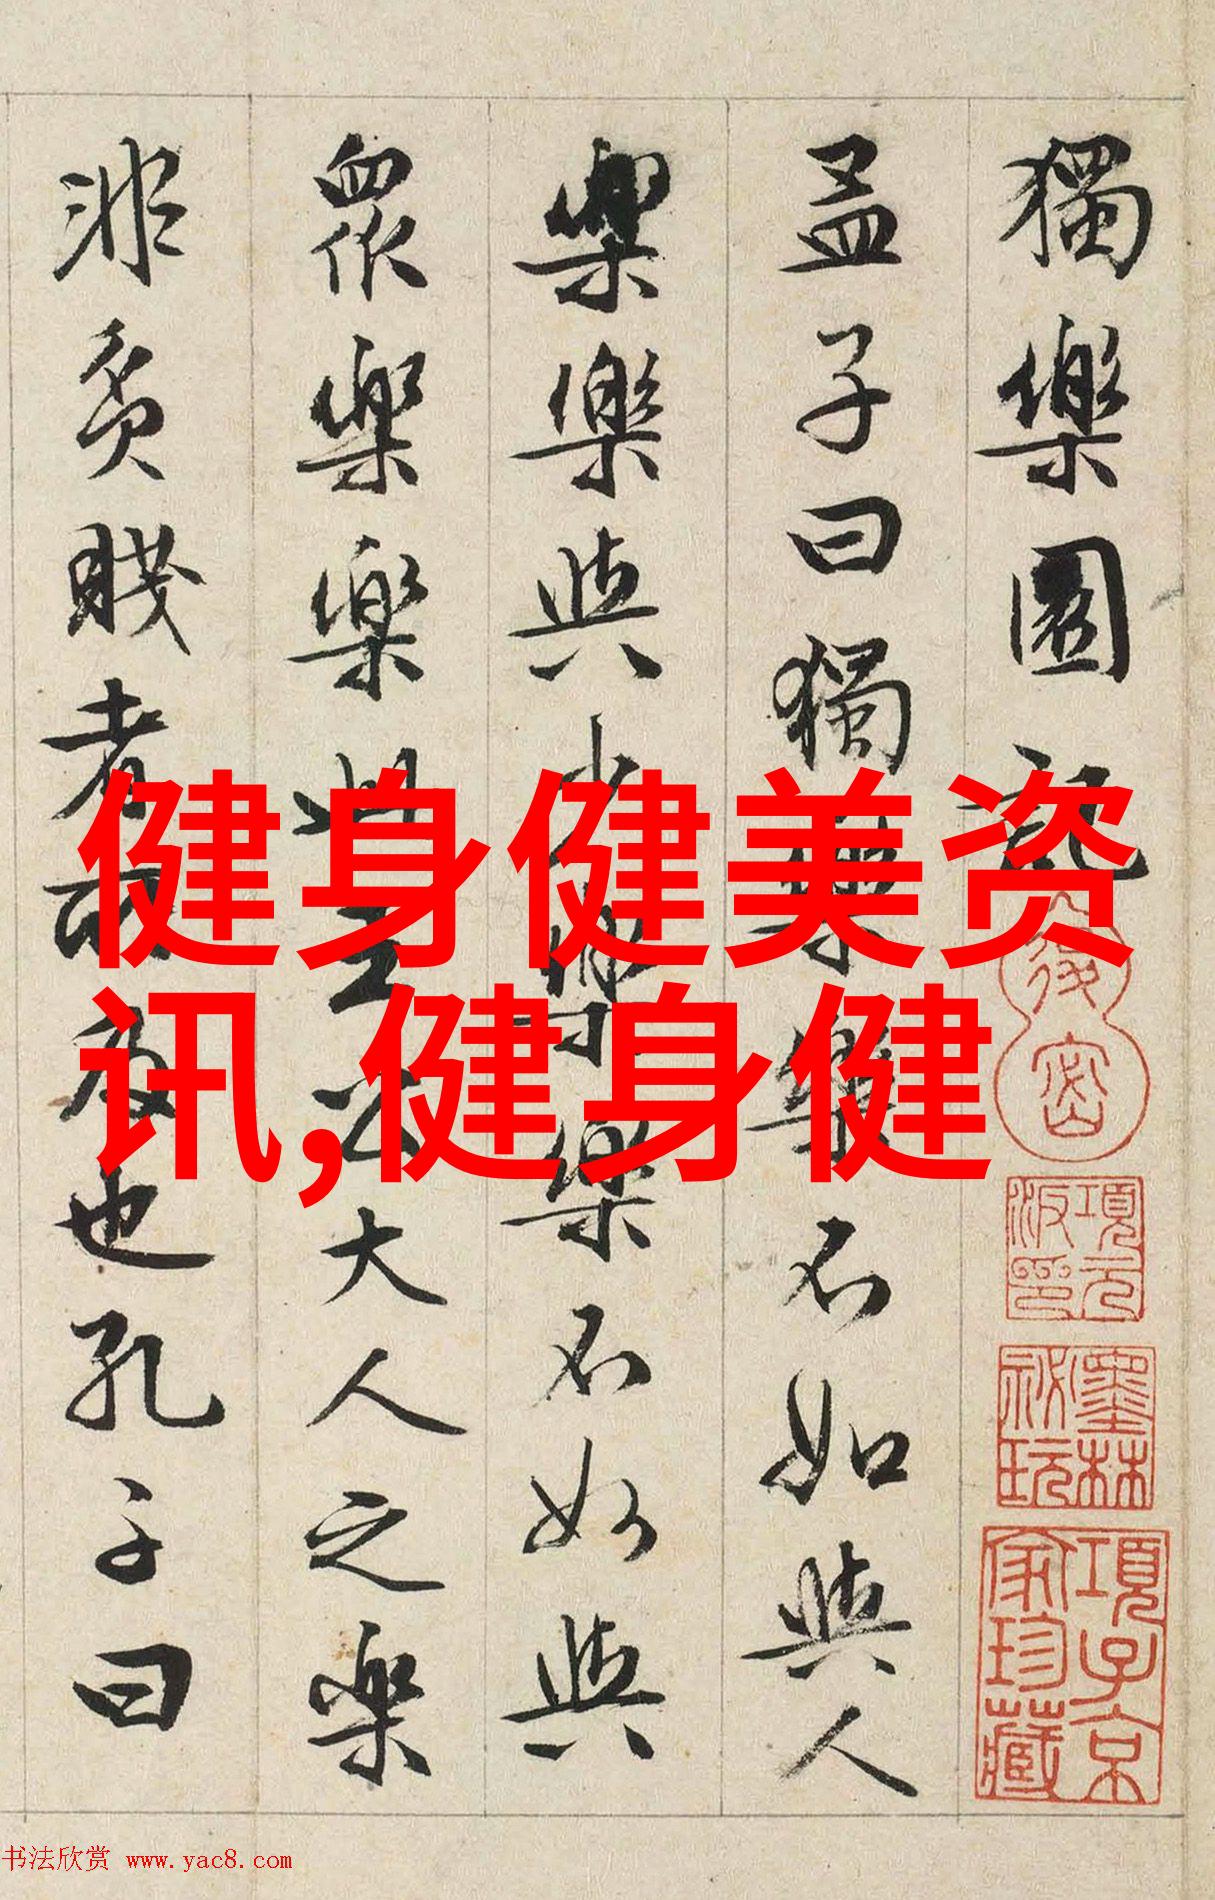 獨樂園記
孟子曰獨樂樂不如與人
樂樂與少樂樂不如與
眾樂樂此王公大人之樂
非貧賤者所及也孔子曰
健身健美资
讯,健身健
項元汴印
墨林秘玩
項子京家珍藏
书法欣赏 www.yac8.com